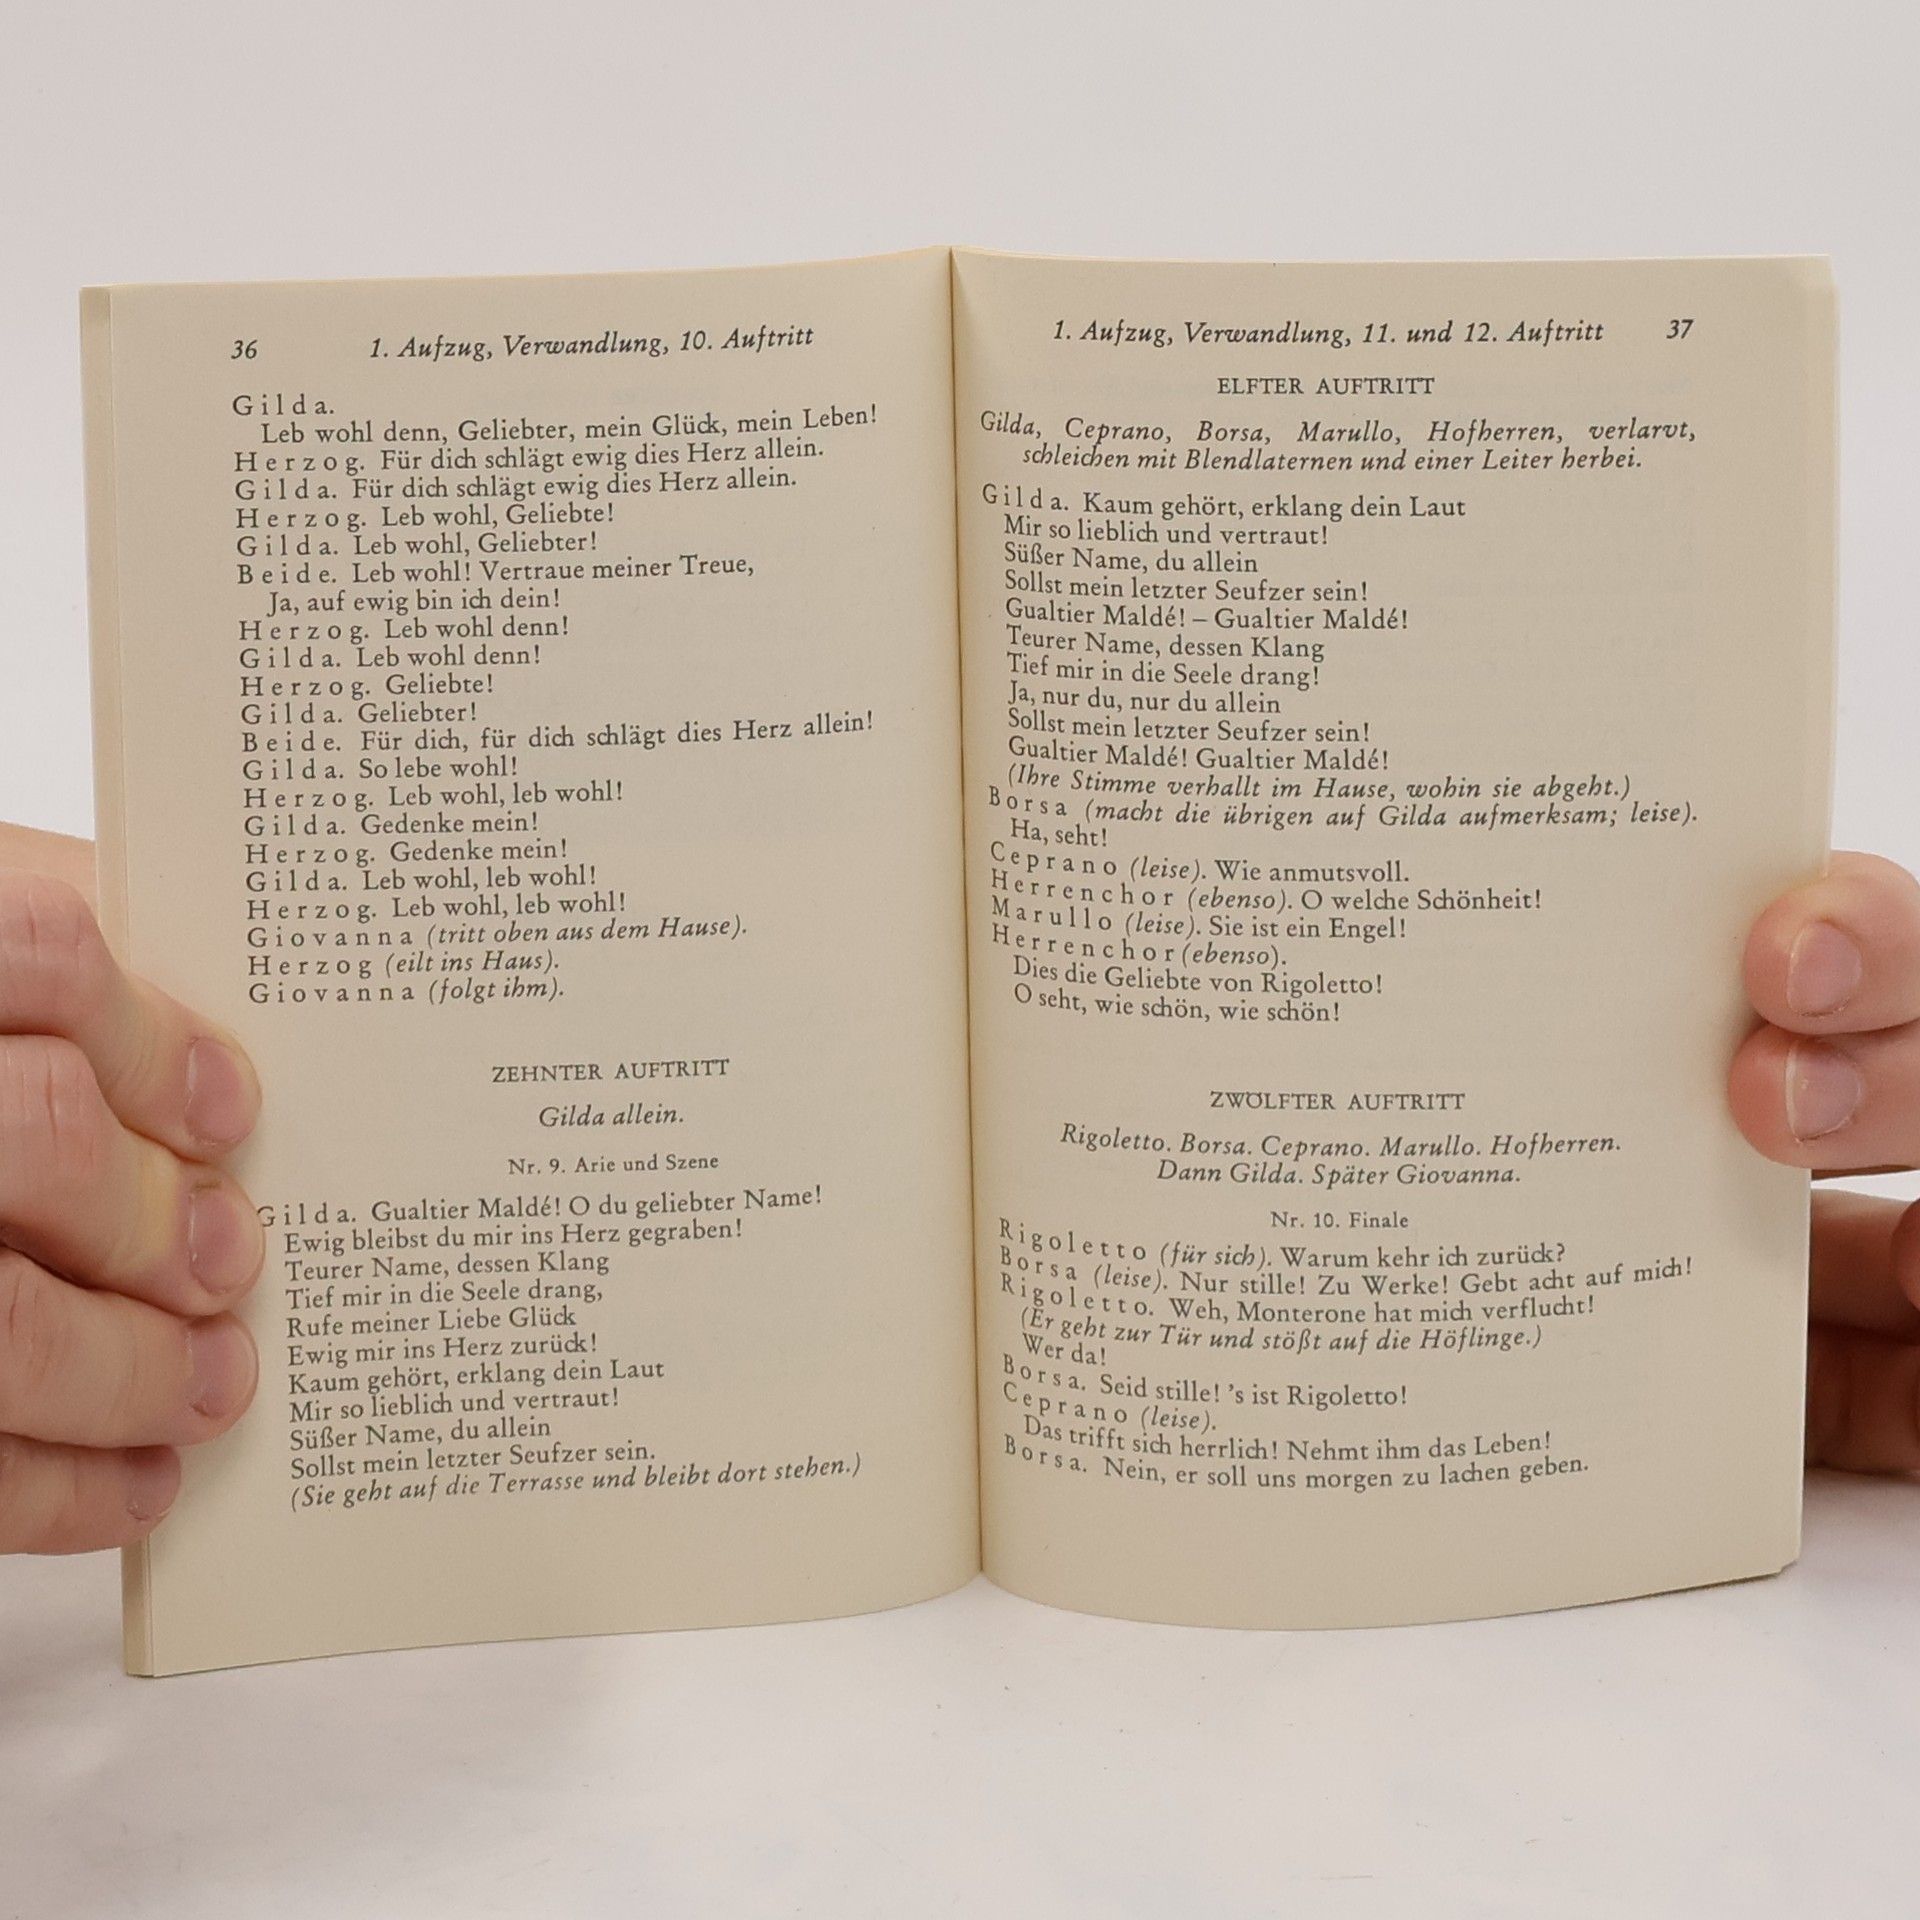 36 1. Aufzug, Verwandlung, 10. Auftritt
Gilda.
Leb wohl denn, Geliebter, mein Glück, mein Leben!
Herzog. Für dich schlägt ewig dies Herz allein.
Gilda. Für dich schlägt ewig dies Herz allein.
Herzog. Leb wohl, Geliebte!
Gilda. Leb wohl, Geliebter!
Beide. Leb wohl! Vertraue meiner Treue,
Ja, auf ewig bin ich dein!
Herzog. Leb wohl denn!
Gilda. Leb wohl denn!
Herzog. Geliebte!
Gilda. Geliebter!
Beide. Für dich, für dich schlägt dies Herz allein!
Gilda. So lebe wohl!
Herzog. Leb wohl, leb wohl!
Gilda. Gedenke mein!
Herzog. Gedenke mein!
Gilda. Leb wohl, leb wohl!
Herzog. Leb wohl, leb wohl!
Giovanna (tritt oben aus dem Hause).
Herzog (eilt ins Haus).
Giovanna (folgt ihm).
ZEHNTER AUFTRITT
Gilda allein.
Nr. 9. Arie und Szene
Gilda. Gualtier Maldé! O du geliebter Name!
Ewig bleibst du mir ins Herz gegraben!
Teurer Name, dessen Klang
Tief mir in die Seele drang,
Rufe meiner Liebe Glück
Ewig mir ins Herz zurück!
Kaum gehört, erklang dein Laut
Mir so lieblich und vertraut!
Süßer Name, du allein
Sollst mein letzter Seufzer sein.
(Sie geht auf die Terrasse und bleibt dort stehen.)
1. Aufzug, Verwandlung, 11. und 12. Auftritt 37
ELFTER AUFTRITT
Gilda, Ceprano, Borsa, Marullo, Hofherren, verlarvt,
schleichen mit Blendlaternen und einer Leiter herbei.
Gilda. Kaum gehört, erklang dein Laut
Mir so lieblich und vertraut!
Süßer Name, du allein
Sollst mein letzter Seufzer sein!
Gualtier Maldé! – Gualtier Maldé!
Teurer Name, dessen Klang
Tief mir in die Seele drang!
Ja, nur du, nur du allein
Sollst mein letzter Seufzer sein!
Gualtier Maldé! Gualtier Maldé!
(Ihre Stimme verhallt im Hause, wohin sie abgeht.)
Borsa (macht die übrigen auf Gilda aufmerksam; leise).
Ha, seht!
Ceprano (leise). Wie anmutsvoll.
Herrenchor (ebenso). O welche Schönheit!
Marullo (leise). Sie ist ein Engel!
Herrenchor (ebenso).
Dies die Geliebte von Rigoletto!
O seht, wie schön, wie schön!
ZWÖLFTER AUFTRITT
Rigoletto. Borsa. Ceprano. Marullo. Hofherren.
Dann Gilda. Später Giovanna.
Nr. 10. Finale
Rigoletto (für sich). Warum kehr ich zurück?
Borsa (leise). Nur stille! Zu Werke! Gebt acht auf mich!
Rigoletto. Weh, Monterone hat mich verflucht!
(Er geht zur Tür und stößt auf die Höflinge.)
Wer da!
Borsa. Seid stille! ’s ist Rigoletto!
Ceprano (leise).
Das trifft sich herrlich! Nehmt ihm das Leben!
Borsa. Nein, er soll uns morgen zu lachen geben.